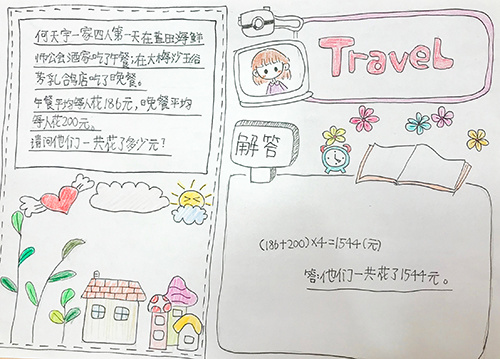 何天宇一家四人第一天在盐田海鲜
吃了午餐,在大梅沙
吃了晚餐。
午餐平均每人花186元,晚餐平均
每人花200元。
请问他们一共花了多少元?
Travel
解答
(186+200)×4=1544(元)
答:他们一共花了1544元。